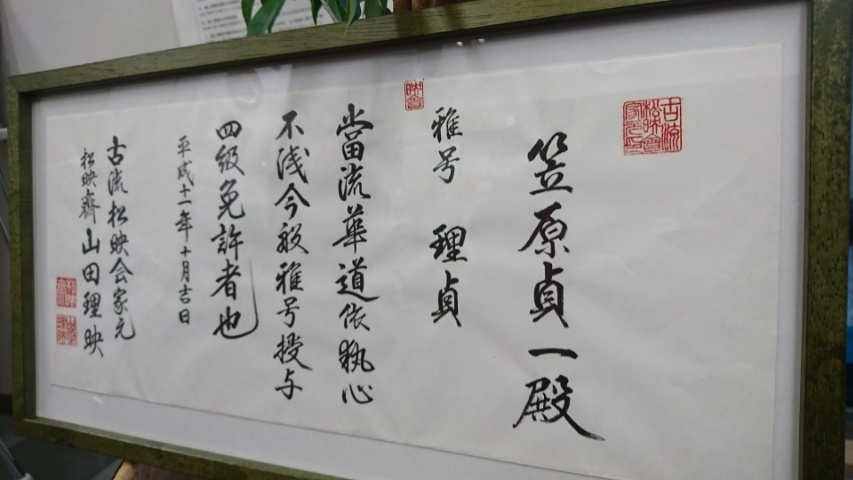 笠原貞一殿
雅号 理貞
當流華道依執心
不浅今般雅号授与
四級免許者也
平成十一年十月吉日
古流松映会家元
松映齋山田理映
古流松映会家元